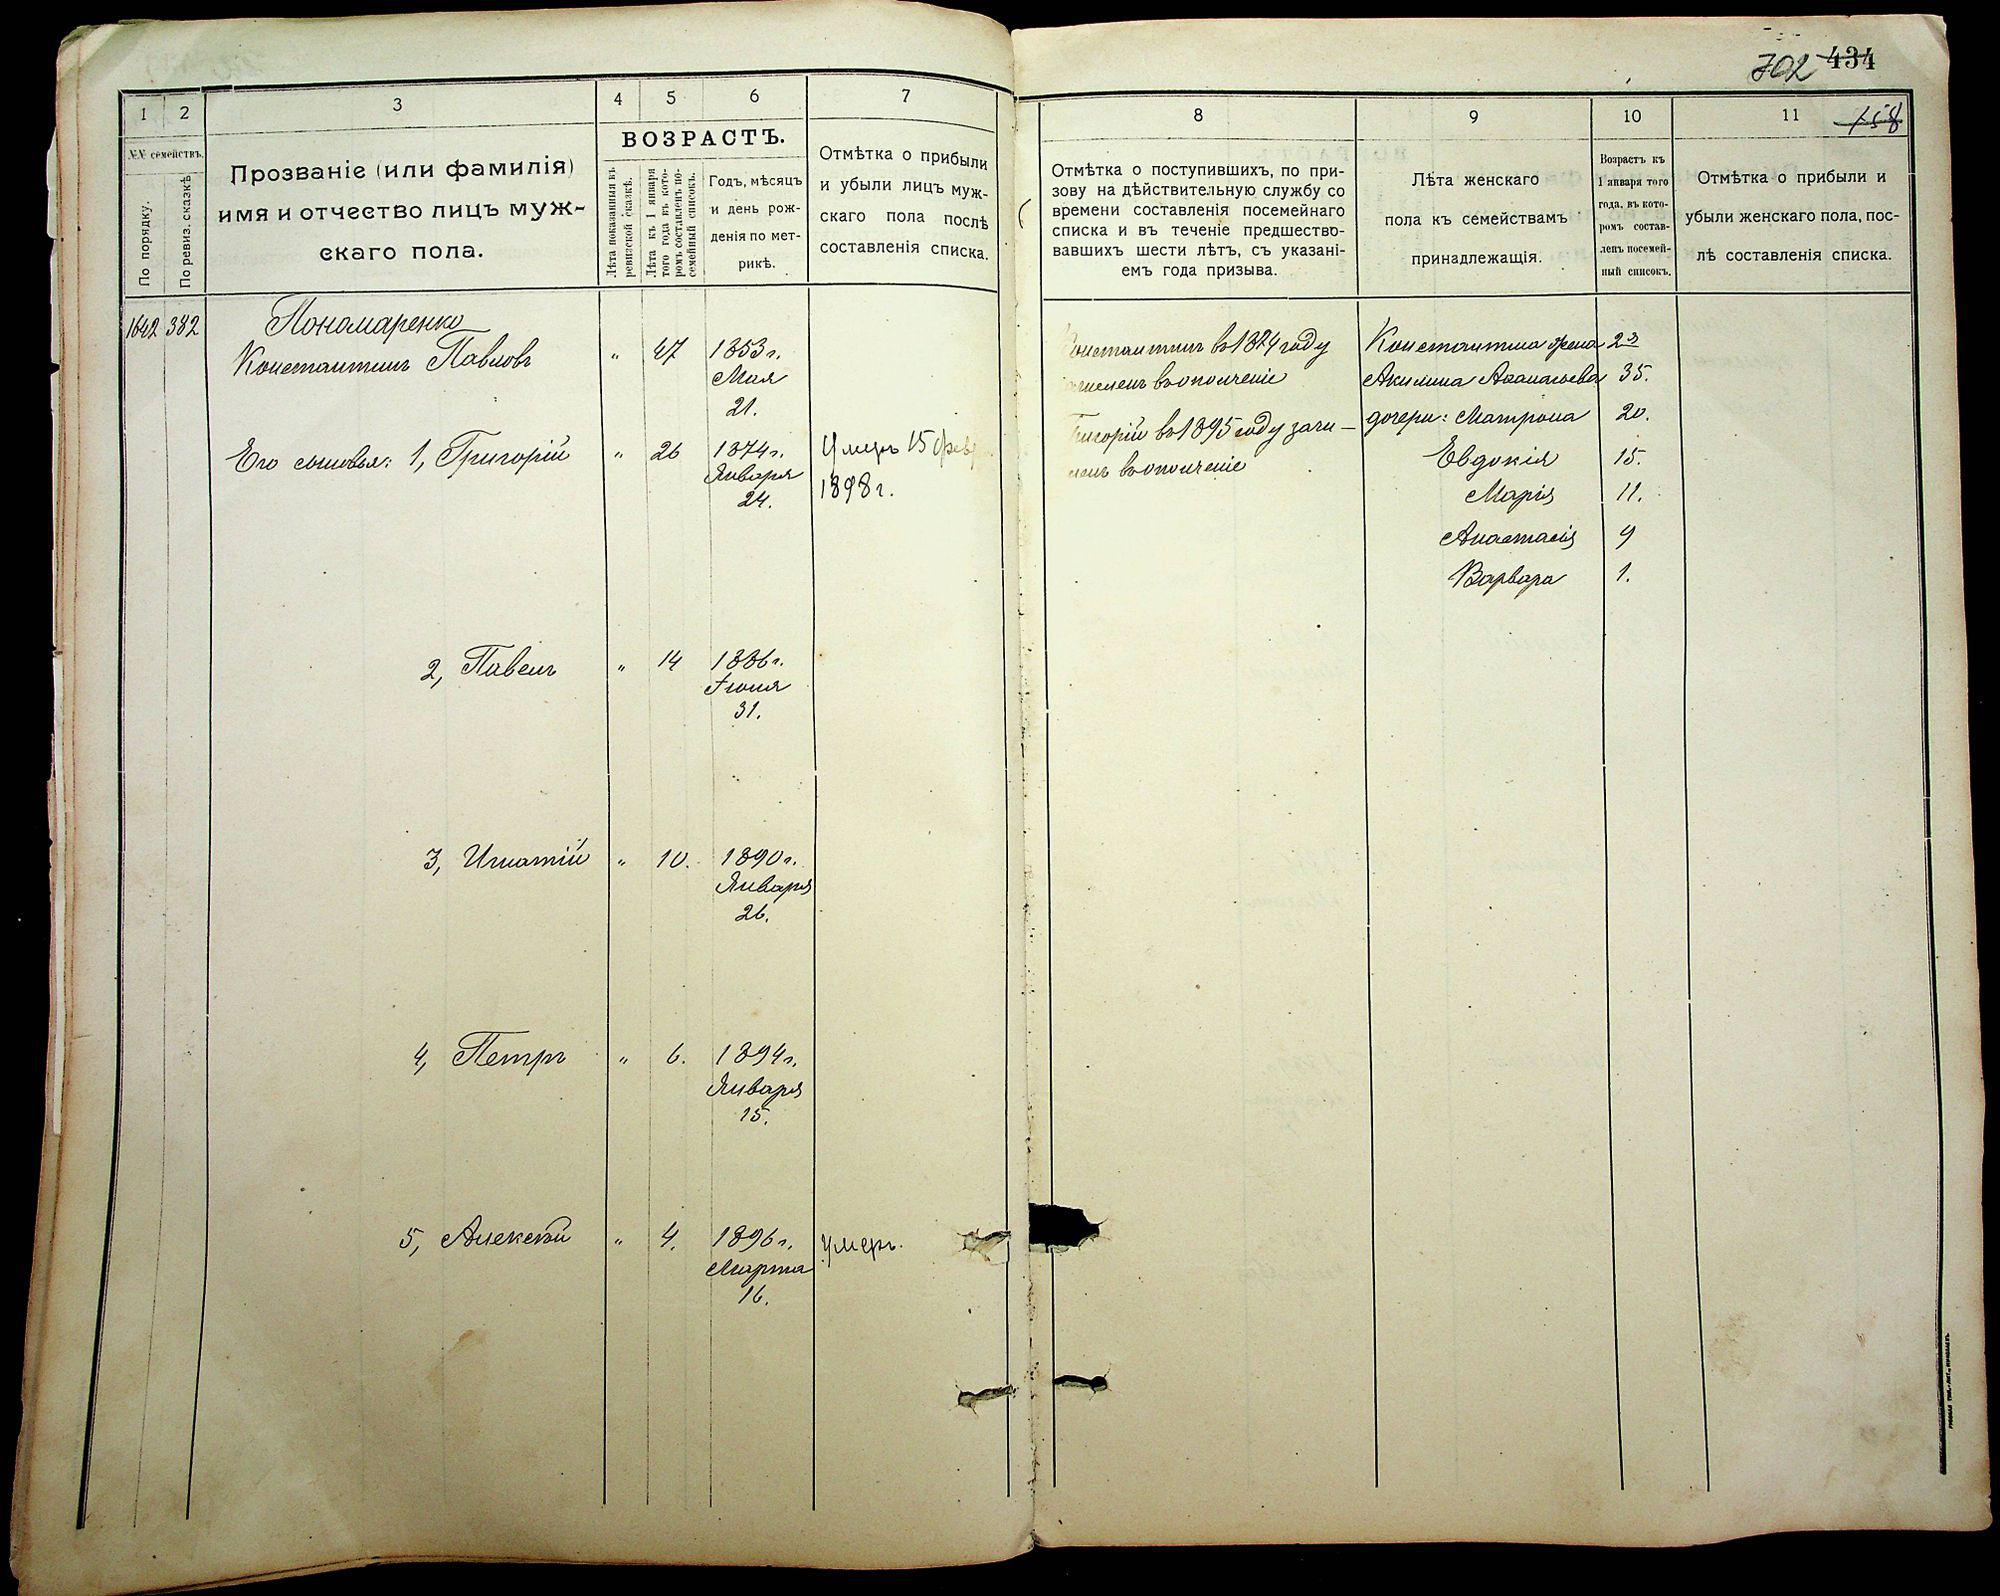 702 434
158
1 2 3 4 5 6 7
№№ семействъ.
По порядку.
По ревиз. сказкѣ
Прозваніе (или фамилія)
имя и отчество лицъ муж-
скаго пола.
ВОЗРАСТЪ.
Лѣта показанныя въ
ревизской сказкѣ.
Лѣта къ 1 января
того года въ кото-
ромъ составленъ по-
семейный списокъ.
Годъ, мѣсяцъ
и день рож-
денія по мет-
рикѣ.
Отмѣтка о прибыли
и убыли лицъ муж-
скаго пола послѣ
составленія списка.
8 9 10 11
Отмѣтка о поступившихъ, по при-
зову на дѣйствительную службу со
времени составленія посемейнаго
списка и въ теченіе предшество-
вавшихъ шести лѣтъ, съ указані-
емъ года призыва.
Лѣта женскаго
пола къ семействамъ
принадлежащія.
Возрастъ къ
1 января того
года, въ кото-
ромъ состав-
ленъ посемей-
ный списокъ.
Отмѣтка о прибыли и
убыли женскаго пола, пос-
лѣ составленія списка.
1642 382 Пономаренко
Константинъ Павловъ " 47 1853 г.
Мая
21.
Его сыновья: 1, Григорій " 26 1874 г. Умеръ 15 февр
Января 1898 г.
24.
2, Павелъ " 14 1886 г.
Іюня
31.
3, Игнатій " 10. 1890 г.
Января
26.
4, Петръ " 6. 1894 г.
Января
15.
5, Алексѣй " 4. 1896 г. умеръ.
Марта
16.
Константинъ въ 1874 году
зачисленъ въ ополченіе
Григорій въ 1895 году зачи-
сленъ въ ополченіе
Константина жена 2я
Акилина Аѳанасьева 35.
дочери: Матрона 20.
Евдокія 15.
Марія 11.
Анастасія 9
Варвара 1.